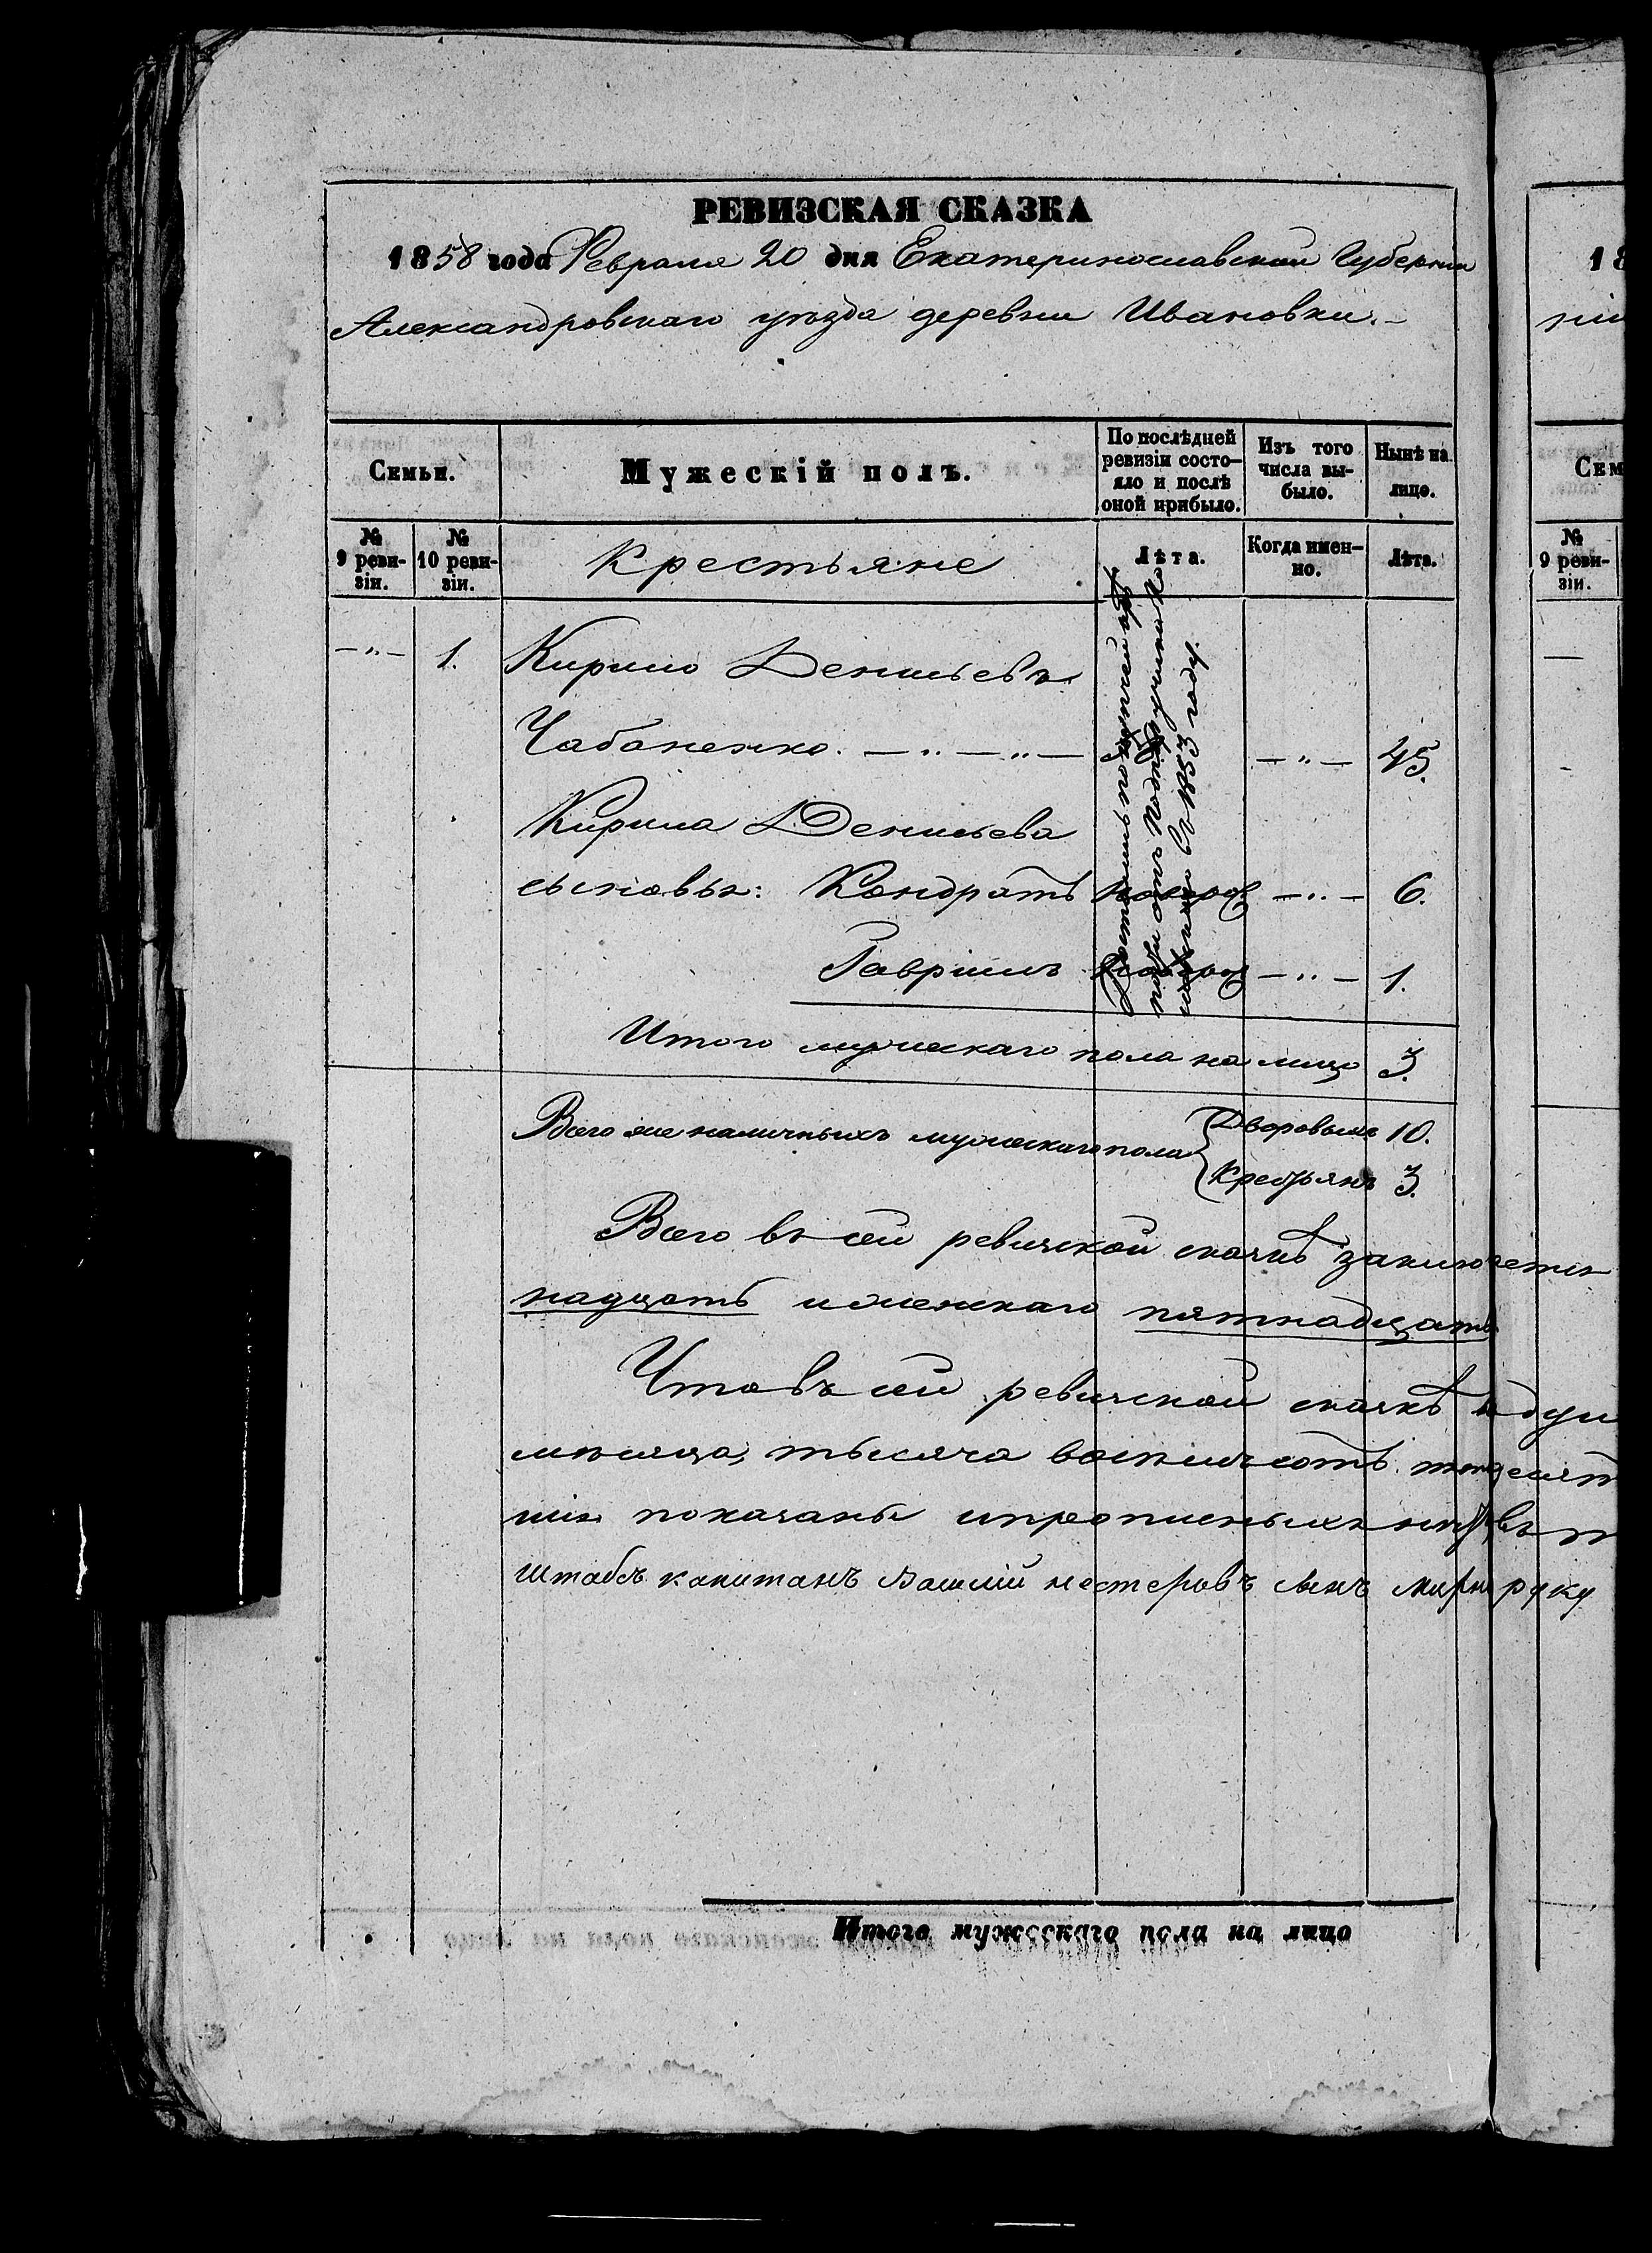 РЕВИЗСКАЯ СКАЗКА
1858 года Февраля 20 дня Екатеринославской Губернии
Александровскаго уѣзда деревни Ивановки.
Семьи.
Мужескій полъ.
По послѣдней ревизіи состо-
яло и послѣ
оной прибыло.
Изъ того
числа вы-
было.
Нынѣ на
лицо.
№
9 реви-
зіи.
№
10 реви-
зіи.
Крестьяне
Лѣта.
Когда имен-
но.
Лѣта.
-"- 1. Кирило Денисьевъ
Чабаненко. -"-"- -"- 45.
Кирила Денисьева
сыновья: Кондратъ новорож -"- 6.
Гавріилъ новорож -"- 1.
Достались по купчей
отъ Подпоручика
въ 1853 году.
Итого мужескаго пола на лицо 3.
Всего же наличныхъ мужескаго пола Дворовыхъ 10.
Крестьянъ 3.
Всего въ сей ревизской сказкѣ заключает
надцать и женскаго пятнадцать
Что въ сей ревизской сказкѣ
мѣсяца, тысяча восемьсотъ
показаны и прописныхъ нѣтъ, въ
Штабсъ капитанъ Василій нестеровъ сынъ руку
Итого мужескаго пола на лицо
18
Сем
№
9 реви-
зіи.